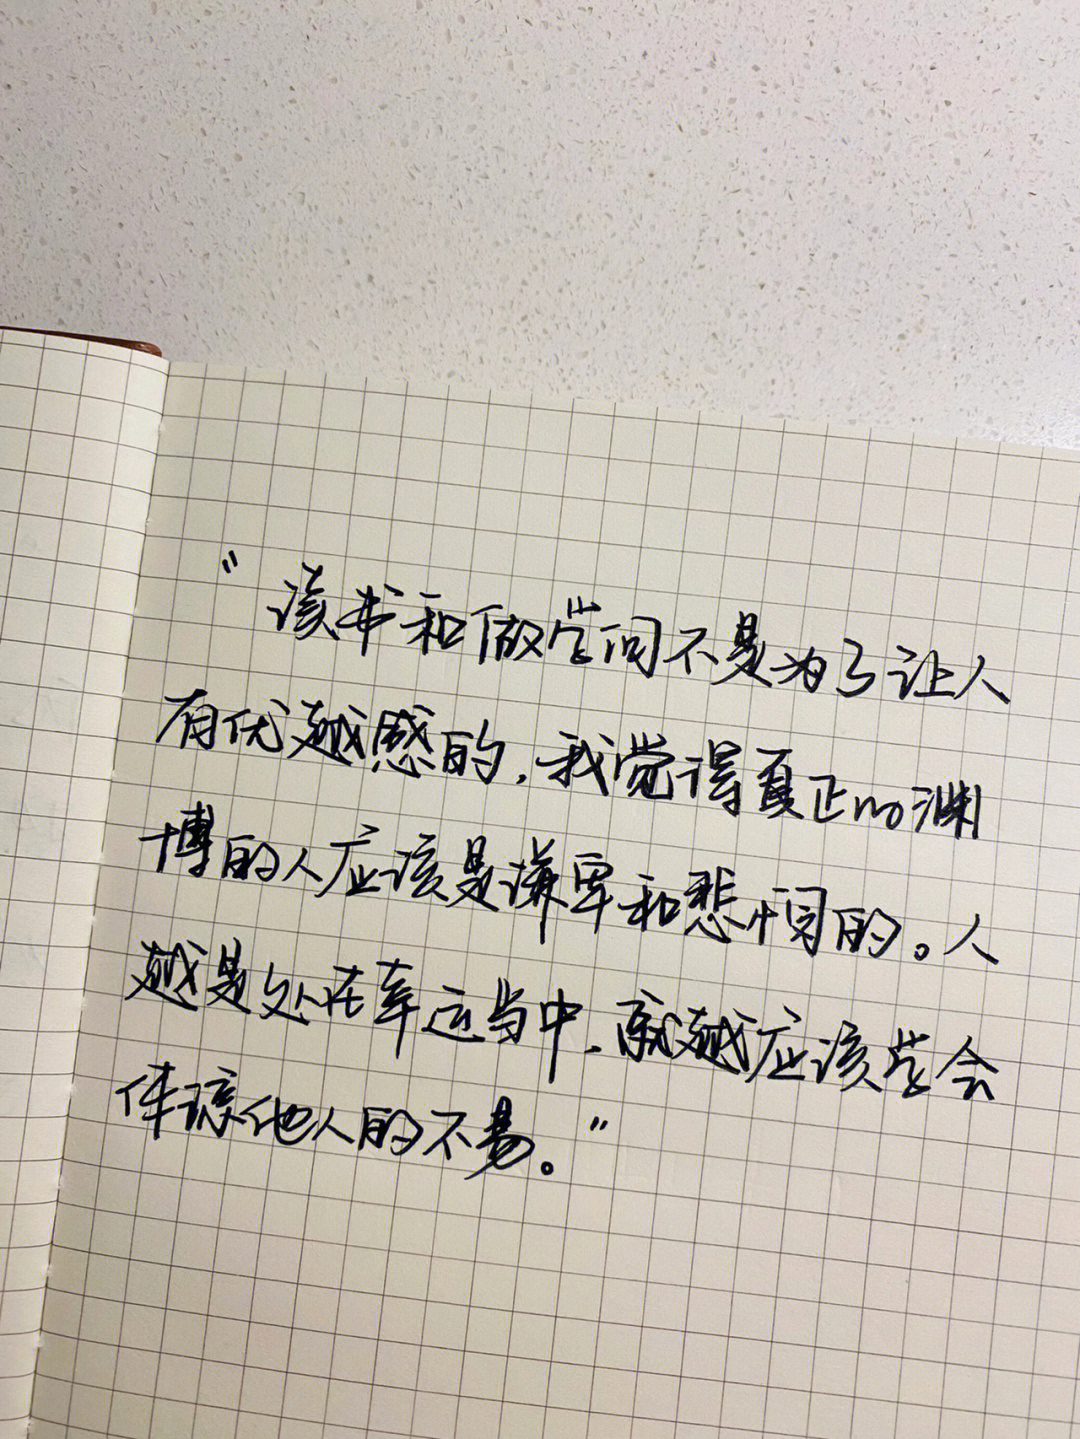 “读书和做学问不是为了让人
有优越感的,我觉得真正的渊
博的人应该是谦卑和悲悯的。人
越是处在幸运当中,就越应该学会
体谅他人的不易。”